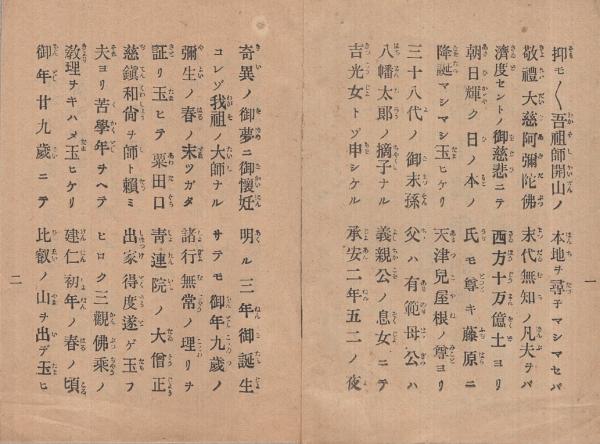 一
抑モ〳〵吾祖師開山ノ 本地ヲ尋子マシマセバ
敬禮大慈阿彌陀佛 末代無知ノ凡夫ヲバ
濟度セントノ御慈悲ニテ 西方十万億土ヨリ
朝日輝ク日ノ本ノ 氏モ尊キ藤原ニ
降誕マシマシ玉ヒケリ 天津兒屋根ノ尊ヨリ
三十八代ノ御末孫 父ハ有範母公ハ
八幡太郎ノ摘子ナル 義親公ノ息女ニテ
吉光女トゾ申シケル 承安二年五二ノ夜
奇異ノ御夢ニ御懷妊 明ル三年御誕生
コレゾ我祖ノ大師ナル サテモ御年九歲ノ
彌生ノ春ノ末ツガタ 諸行無常ノ理リヲ
証リ玉ヒテ粟田口 靑連院ノ大僧正
慈鎭和尙ヲ師ト賴ミ 出家得度遂ゲ玉フ
夫ヨリ苦學年ヲヘテ ヒロク三觀佛乘ノ
敎理ヲキハメ玉ヒケリ 建仁初年ノ春ノ頃
御年廿九歲ニテ 比叡ノ山ヲ出デ玉ヒ
二